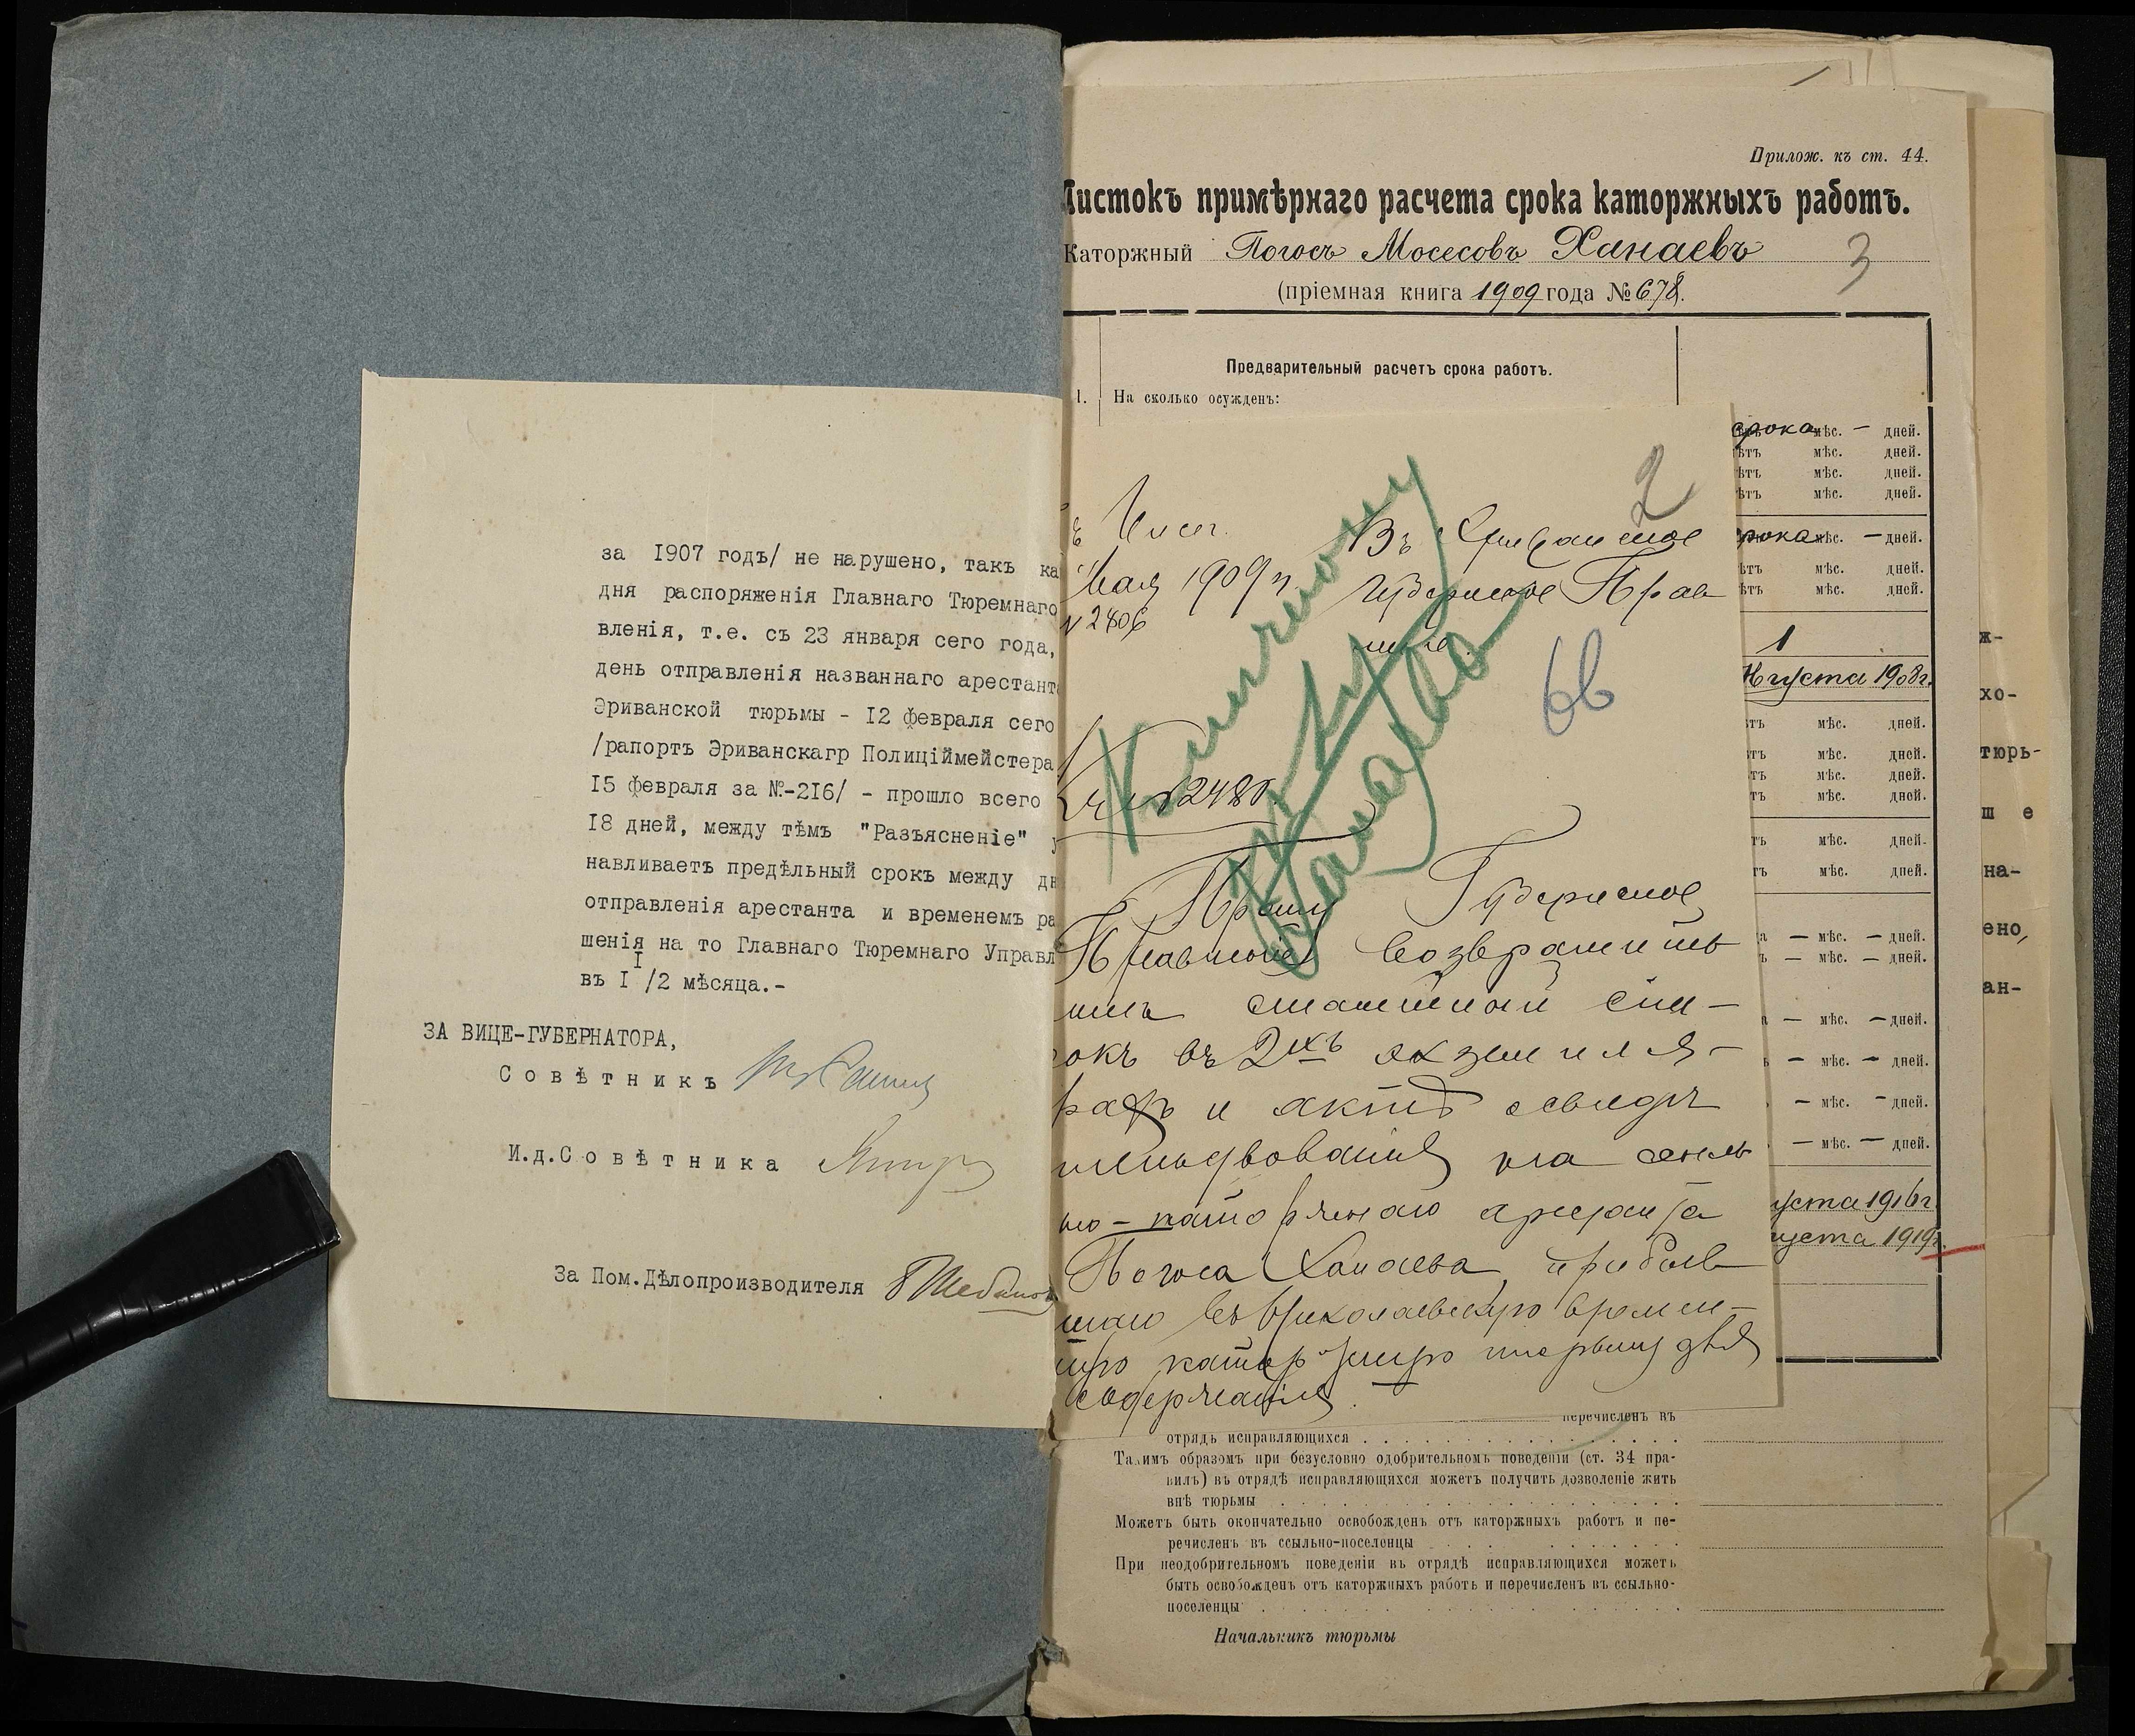 за 1907 годъ/ не нарушено, такъ ка
дня распоряженія Главнаго Тюремнаго
вленія, т.е. съ 23 января сего года,
день отправленія названнаго арестант
Эриванской тюрьмы - I2 февраля сего
/рапортъ Эриванскагр Полиціймейстера
I5 февраля за №-2I6/ - прошло всего
I8 дней, между тѣмъ "Разъясненіе"
навливаетъ предѣльный срокъ между дн
отправленія арестанта и временемъ ра
шенія на то Главнаго Тюремнаго Управл
въ I I/2 мѣсяца.-
ЗА ВИЦЕ-ГУБЕРНАТОРА,
Совѣтникъ
И.д.Совѣтника
За Пом.Дѣлопроизводителя
Прилож. къ ст. 44.
Листокъ примѣрнаго расчета срока каторжныхъ работъ.
Каторжный Погосъ Мосесовъ Ханаевъ
3
(пріемная книга 1909 года № 678.
Предварительный расчетъ срока работъ.
1. На сколько осужденъ:
срока мѣс. — дней.
ѣтъ мѣс. дней.
ѣтъ мѣс. дней.
ѣтъ мѣс. дней.
срока мѣс. — дней.
ѣтъ мѣс. дней.
ѣтъ мѣс. дней.
1
Августа 1908г.
ѣтъ мѣс. дней.
ѣтъ мѣс. дней.
тъ мѣс. дней.
тъ мѣс. дней.
тъ мѣс. дней.
тъ мѣс. дней.
а — мѣс. — дней.
ъ — мѣс. — дней.
а — мѣс. — дней.
ъ — мѣс. — дней.
— мѣс. — дней.
— мѣс. — дней.
уста 1916г.
густа 1919г.
2
Въ Эриванское
Мая 1909 г. Губернское Прав
№ 2806
леніе.
66
№ 2480
Ханаева
Прошу Губернское
Правленіе возвратить
мнѣ статейный спи-
сокъ въ 2хъ экземпля-
рахъ и актъ освидѣ
тельствованія на ссыль
но-каторжнаго арестанта
Погоса Ханаева, прибыв
шаго въ Николаевскую времен-
ную каторжную тюрьму для
содержанія.
перечисленъ въ
отрядъ исправляющихся
Такимъ образомъ при безусловно одобрительномъ поведеніи (ст. 34 пра-
вилъ) въ отрядѣ исправляющихся можетъ получить дозволеніе жить
внѣ тюрьмы
Можетъ быть окончательно освобожденъ отъ каторжныхъ работъ и пе-
речисленъ въ ссыльно-поселенцы
При неодобрительномъ поведеніи въ отрядѣ исправляющихся можетъ
быть освобожденъ отъ каторжныхъ работъ и перечисленъ въ ссыльно-
поселенцы
Начальникъ тюрьмы
ж-
хо-
тюрь-
ш е
на-
ено,
ан-